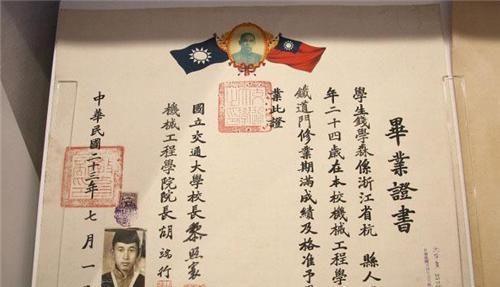 畢業證書
學生錢學森係浙江省杭縣人
年二十四歲在本校機械工程學
鐵道門修業期滿成績及格准予
業此證
國立交通大學校長黎照寰
機械工程學院院長胡端行
中華民國二十三年七月一